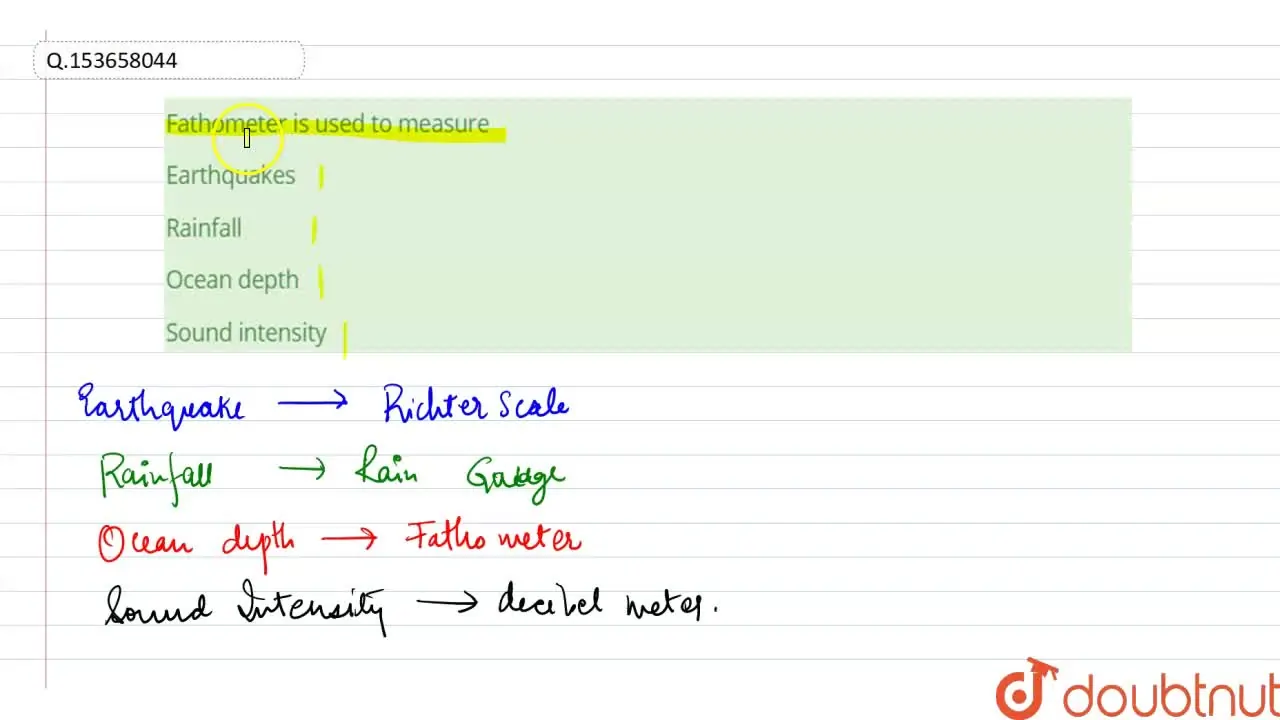 Q.153658044
Fathometer is used to measure
Earthquakes
Rainfall
Ocean depth
Sound intensity
Earthquake → Richter Scale
Rainfall → Rain Gauage
Ocean depth → Fathometer
Sound Intensity → decibel meter.
doubtnut